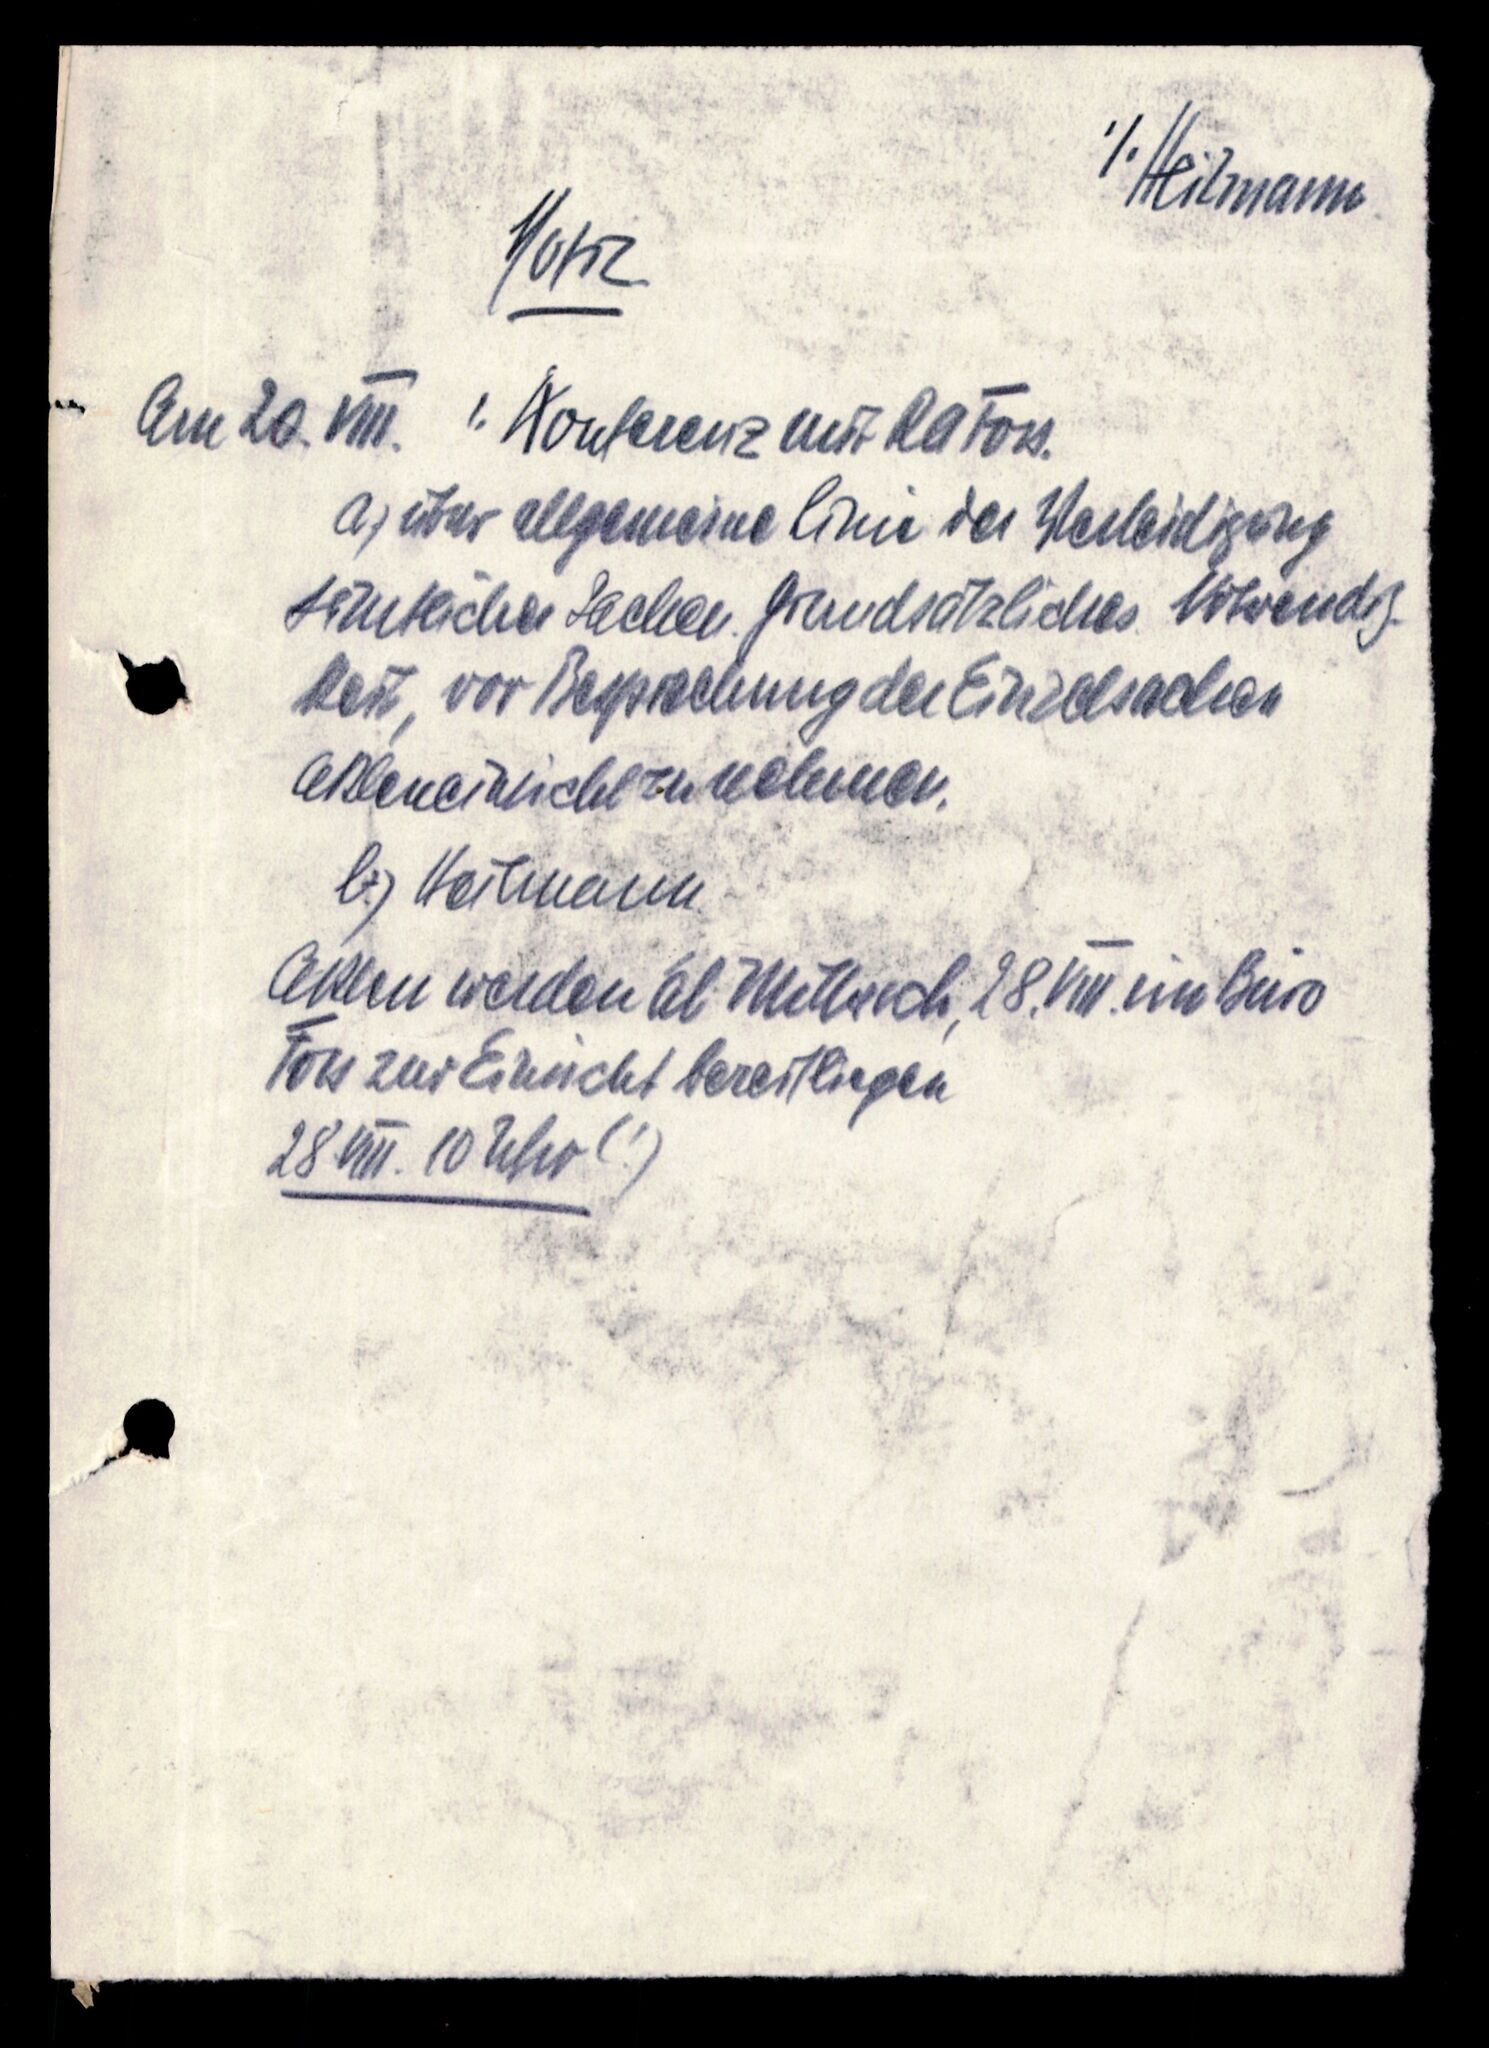 ./. Heilmann
Notiz
Am 20. VIII. 1. Konferenz mit RA Foss.
a) über allgemeine Linie der Verteidigung
sämtlicher Sachen. Grundsätzliches. Notwendig-
keit, vor Besprechung der Einzelsachen
Akteneinsicht zu nehmen.
b.) Heilmann
Akten werden ab Mittwoch, 28. VIII. im Büro
Foss zur Einsicht bereitliegen
28. VIII. 10 Uhr (!)